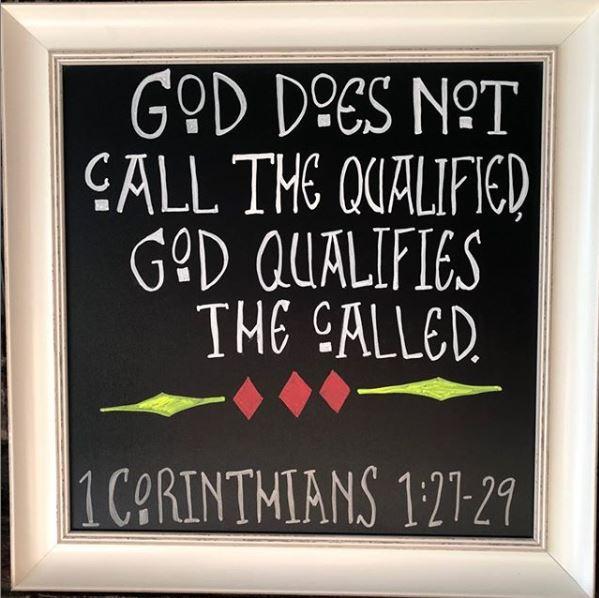 GOD DOES NOT
CALL THE QUALIFIED,
GOD QUALIFIES
THE CALLED.
1 CORINTHIANS 1:27-29